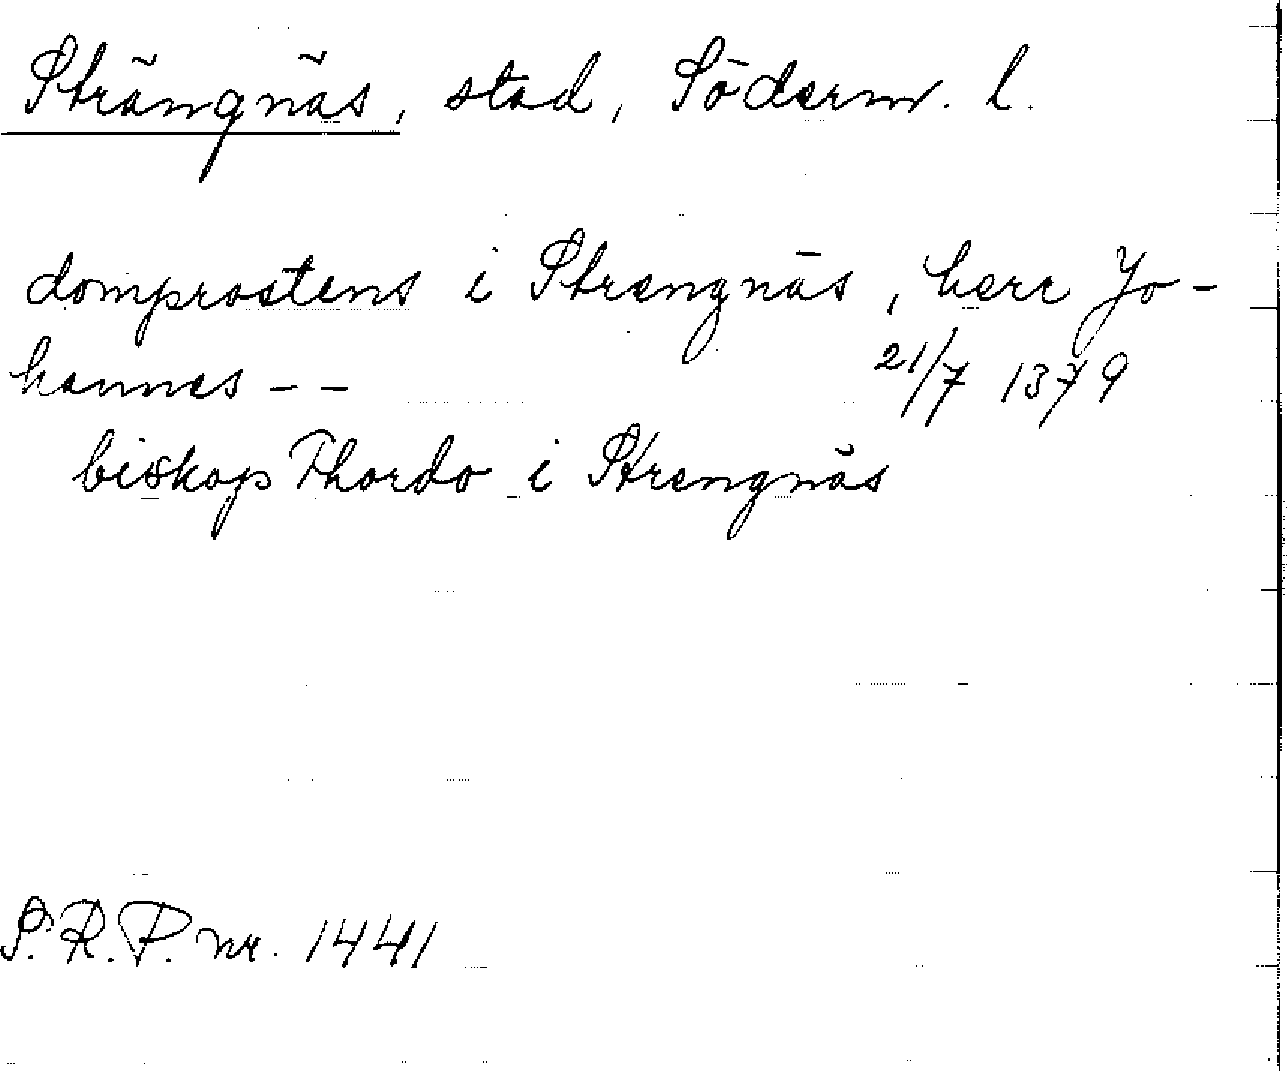 Strängnäs, stad, Söderm. l.
domprostens i Strengnäs, herr Jo-
hannes - - 21/7 1379
biskop Thordo i Strengnäs
S.R.P. nr. 1441